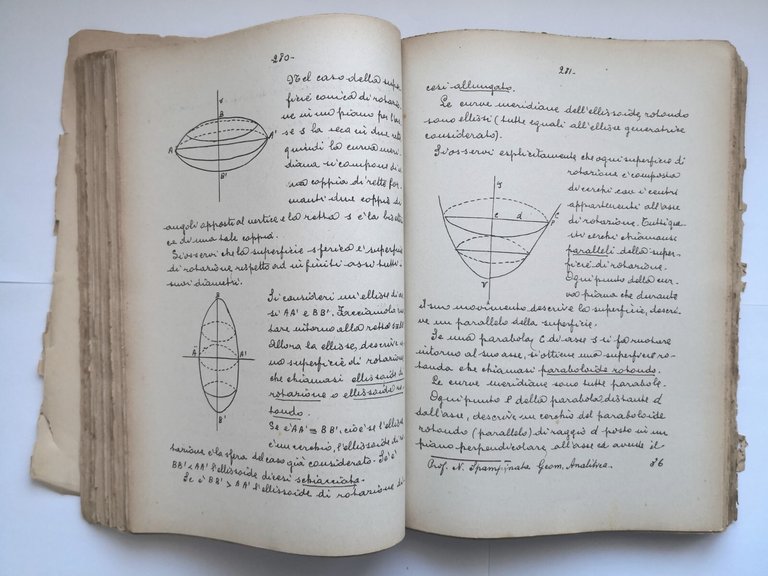 280-
Nel caso della super-
ficie conica di rotazio-
ne in un piano per l'as-
se s la seca in due rette
quindi la curva meri-
diana si compone di u-
na coppia di rette for-
manti due coppie di
angoli opposti al vertice e la retta s è la biset-
ce di una tale coppia.
Si osservi che la superficie sferica è superficie
di rotazione rispetto ad infiniti assi: tutti
suoi diametri.
s
B
A
A'
B'
Si consideri un'ellisse di as-
si AA' e BB'. Facciamola ruo-
tare intorno alla retta s≡BB'
Allora la ellisse, descrive u-
na superficie di rotazione
che chiamasi ellissoide di
rotazione o ellissoide ro-
tondo.
Se è AA' = BB', cioè se l'ellisse
è un cerchio, l'ellissoide di ro-
tazione è la sfera del caso già considerato. Se è
BB' < AA' l'ellissoide dicesi schiacciato.
Se è BB' > AA' l'ellissoide di rotazione di-
B
A
A'
B'
281-
cesi allungato.
Le curve meridiane dell'ellissoide rotondo
sono ellissi (tutte eguali all'ellisse generatrice
considerato).
Si osservi esplicitamente che ogni superficie di
rotazione è composta
di cerchi con i centri
appartenenti all'asse
di rotazione. Tutti que-
sti cerchi chiamansi
paralleli della super-
ficie di rotazione.
Ogni punto della cur-
va piana che durante
il suo movimento descrive la superficie, descri-
ve un parallelo della superficie.
s
c
d
C
P
V
Se una parabola C di asse s si fa ruotare
intorno al suo asse, si ottiene una superficie ro-
tonda che chiamasi paraboloide rotondo.
Le curve meridiane sono tutte parabole.
Ogni punto P della parabola, distante d
dall'asse, descrive un cerchio del paraboloide
rotondo (parallelo) di raggio d posto in un
piano perpendicolare all'asse ed avente il
Prof. N. Spampinato. Geom. Analitica. 36